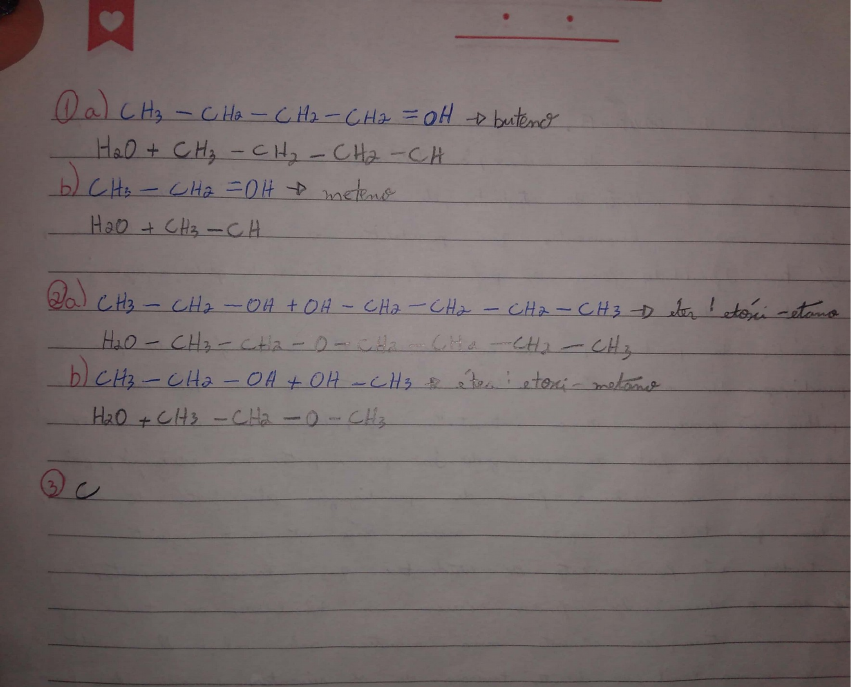 ① a) CH3 - CH2 - CH2 - CH2 = OH → buteno
H2O + CH3 - CH2 - CH2 - CH
b) CH3 - CH2 = OH → meteno
H2O + CH3 - CH
② a) CH3 - CH2 - OH + OH - CH2 - CH2 - CH2 - CH3 → éter: etóxi - etano
H2O - CH3 - CH2 - O - CH2 - CH2 - CH2 - CH3
b) CH3 - CH2 - OH + OH - CH3 → éter: etoxi - metano
H2O + CH3 - CH2 - O - CH3
③ C